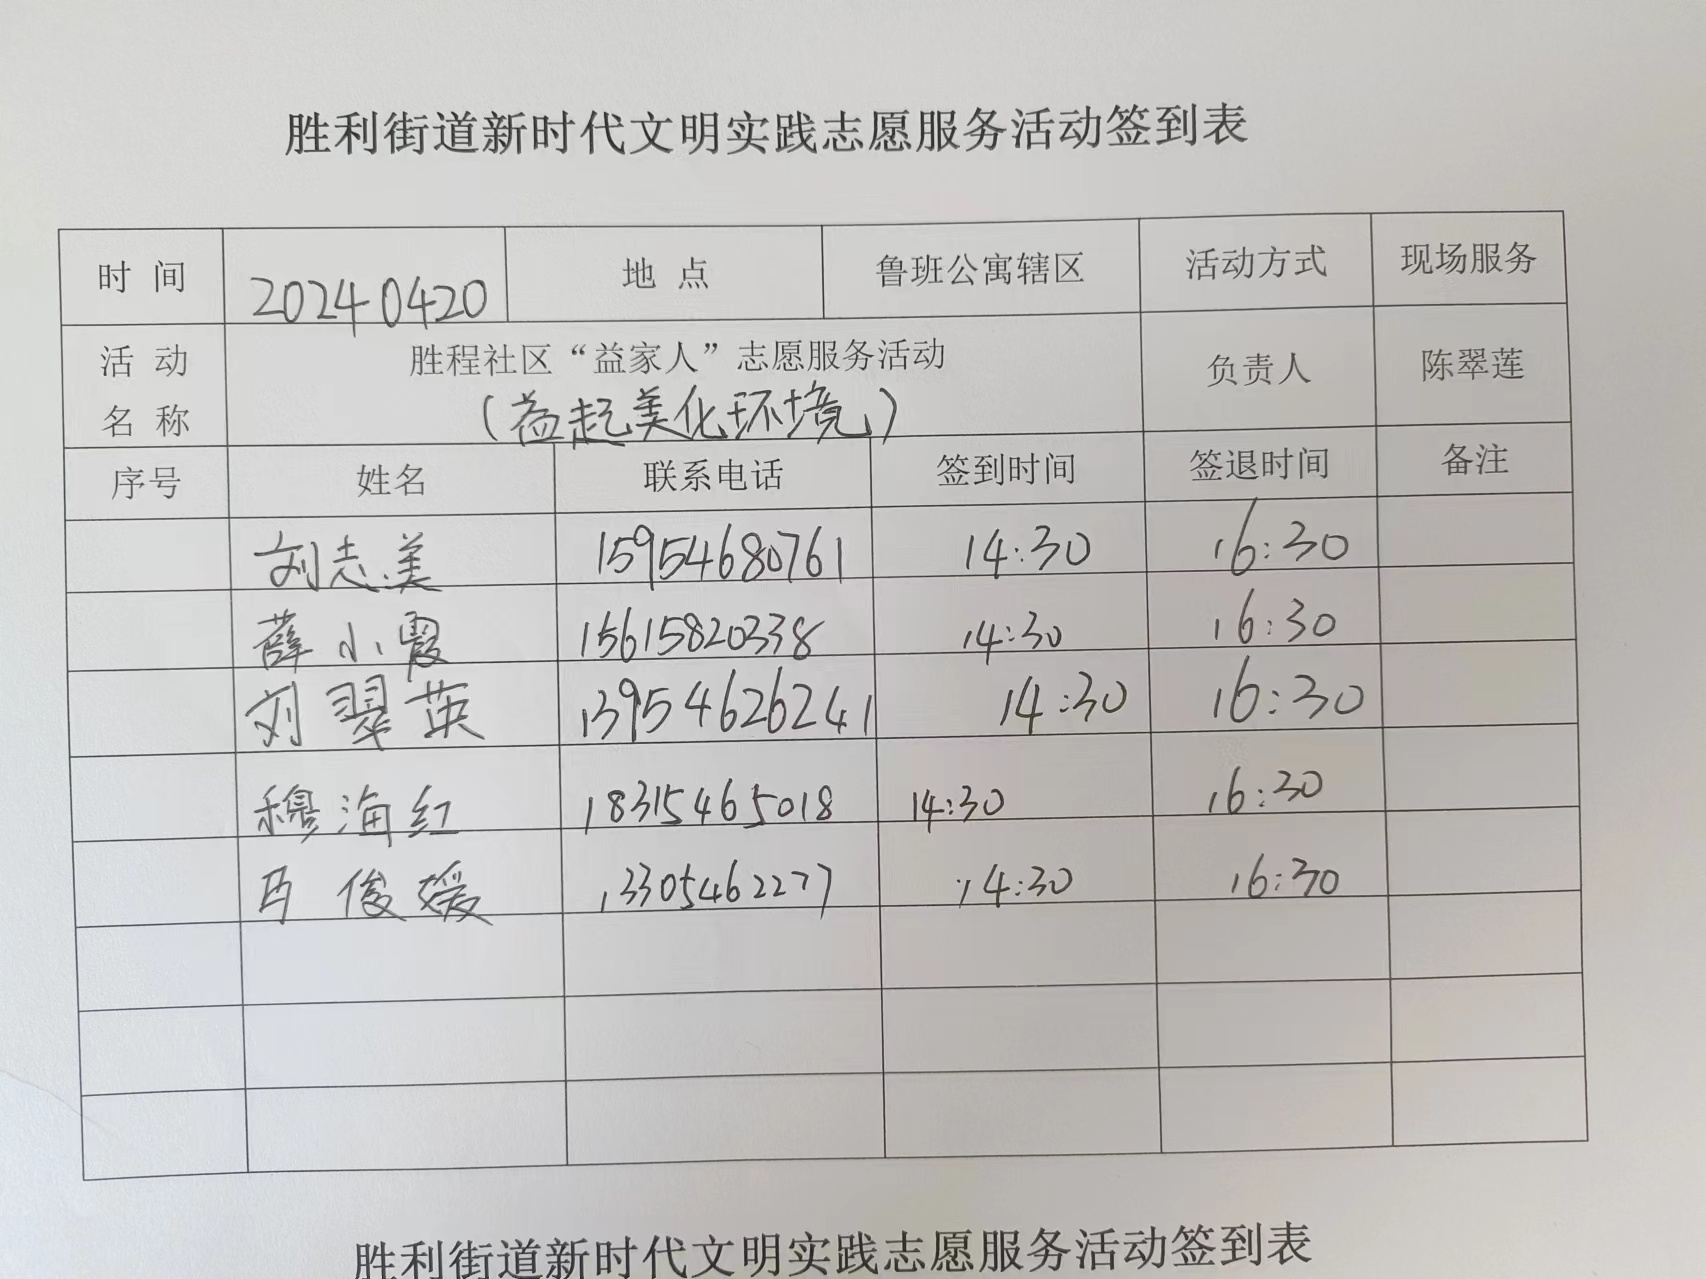 胜利街道新时代文明实践志愿服务活动签到表
时 间 20240420 地 点 鲁班公寓辖区 活动方式 现场服务
活 动 名 称 胜程社区“益家人”志愿服务活动 负责人 陈翠莲
(益起美化环境)
序号 姓名 联系电话 签到时间 签退时间 备注
刘志美 15954680761 14:30 16:30
薛小霞 15615820338 14:30 16:30
刘翠英 13954626241 14:30 16:30
穆海红 18315465018 14:30 16:30
俊媛 13305462277 14:30 16:30
胜利街道新时代文明实践志愿服务活动签到表